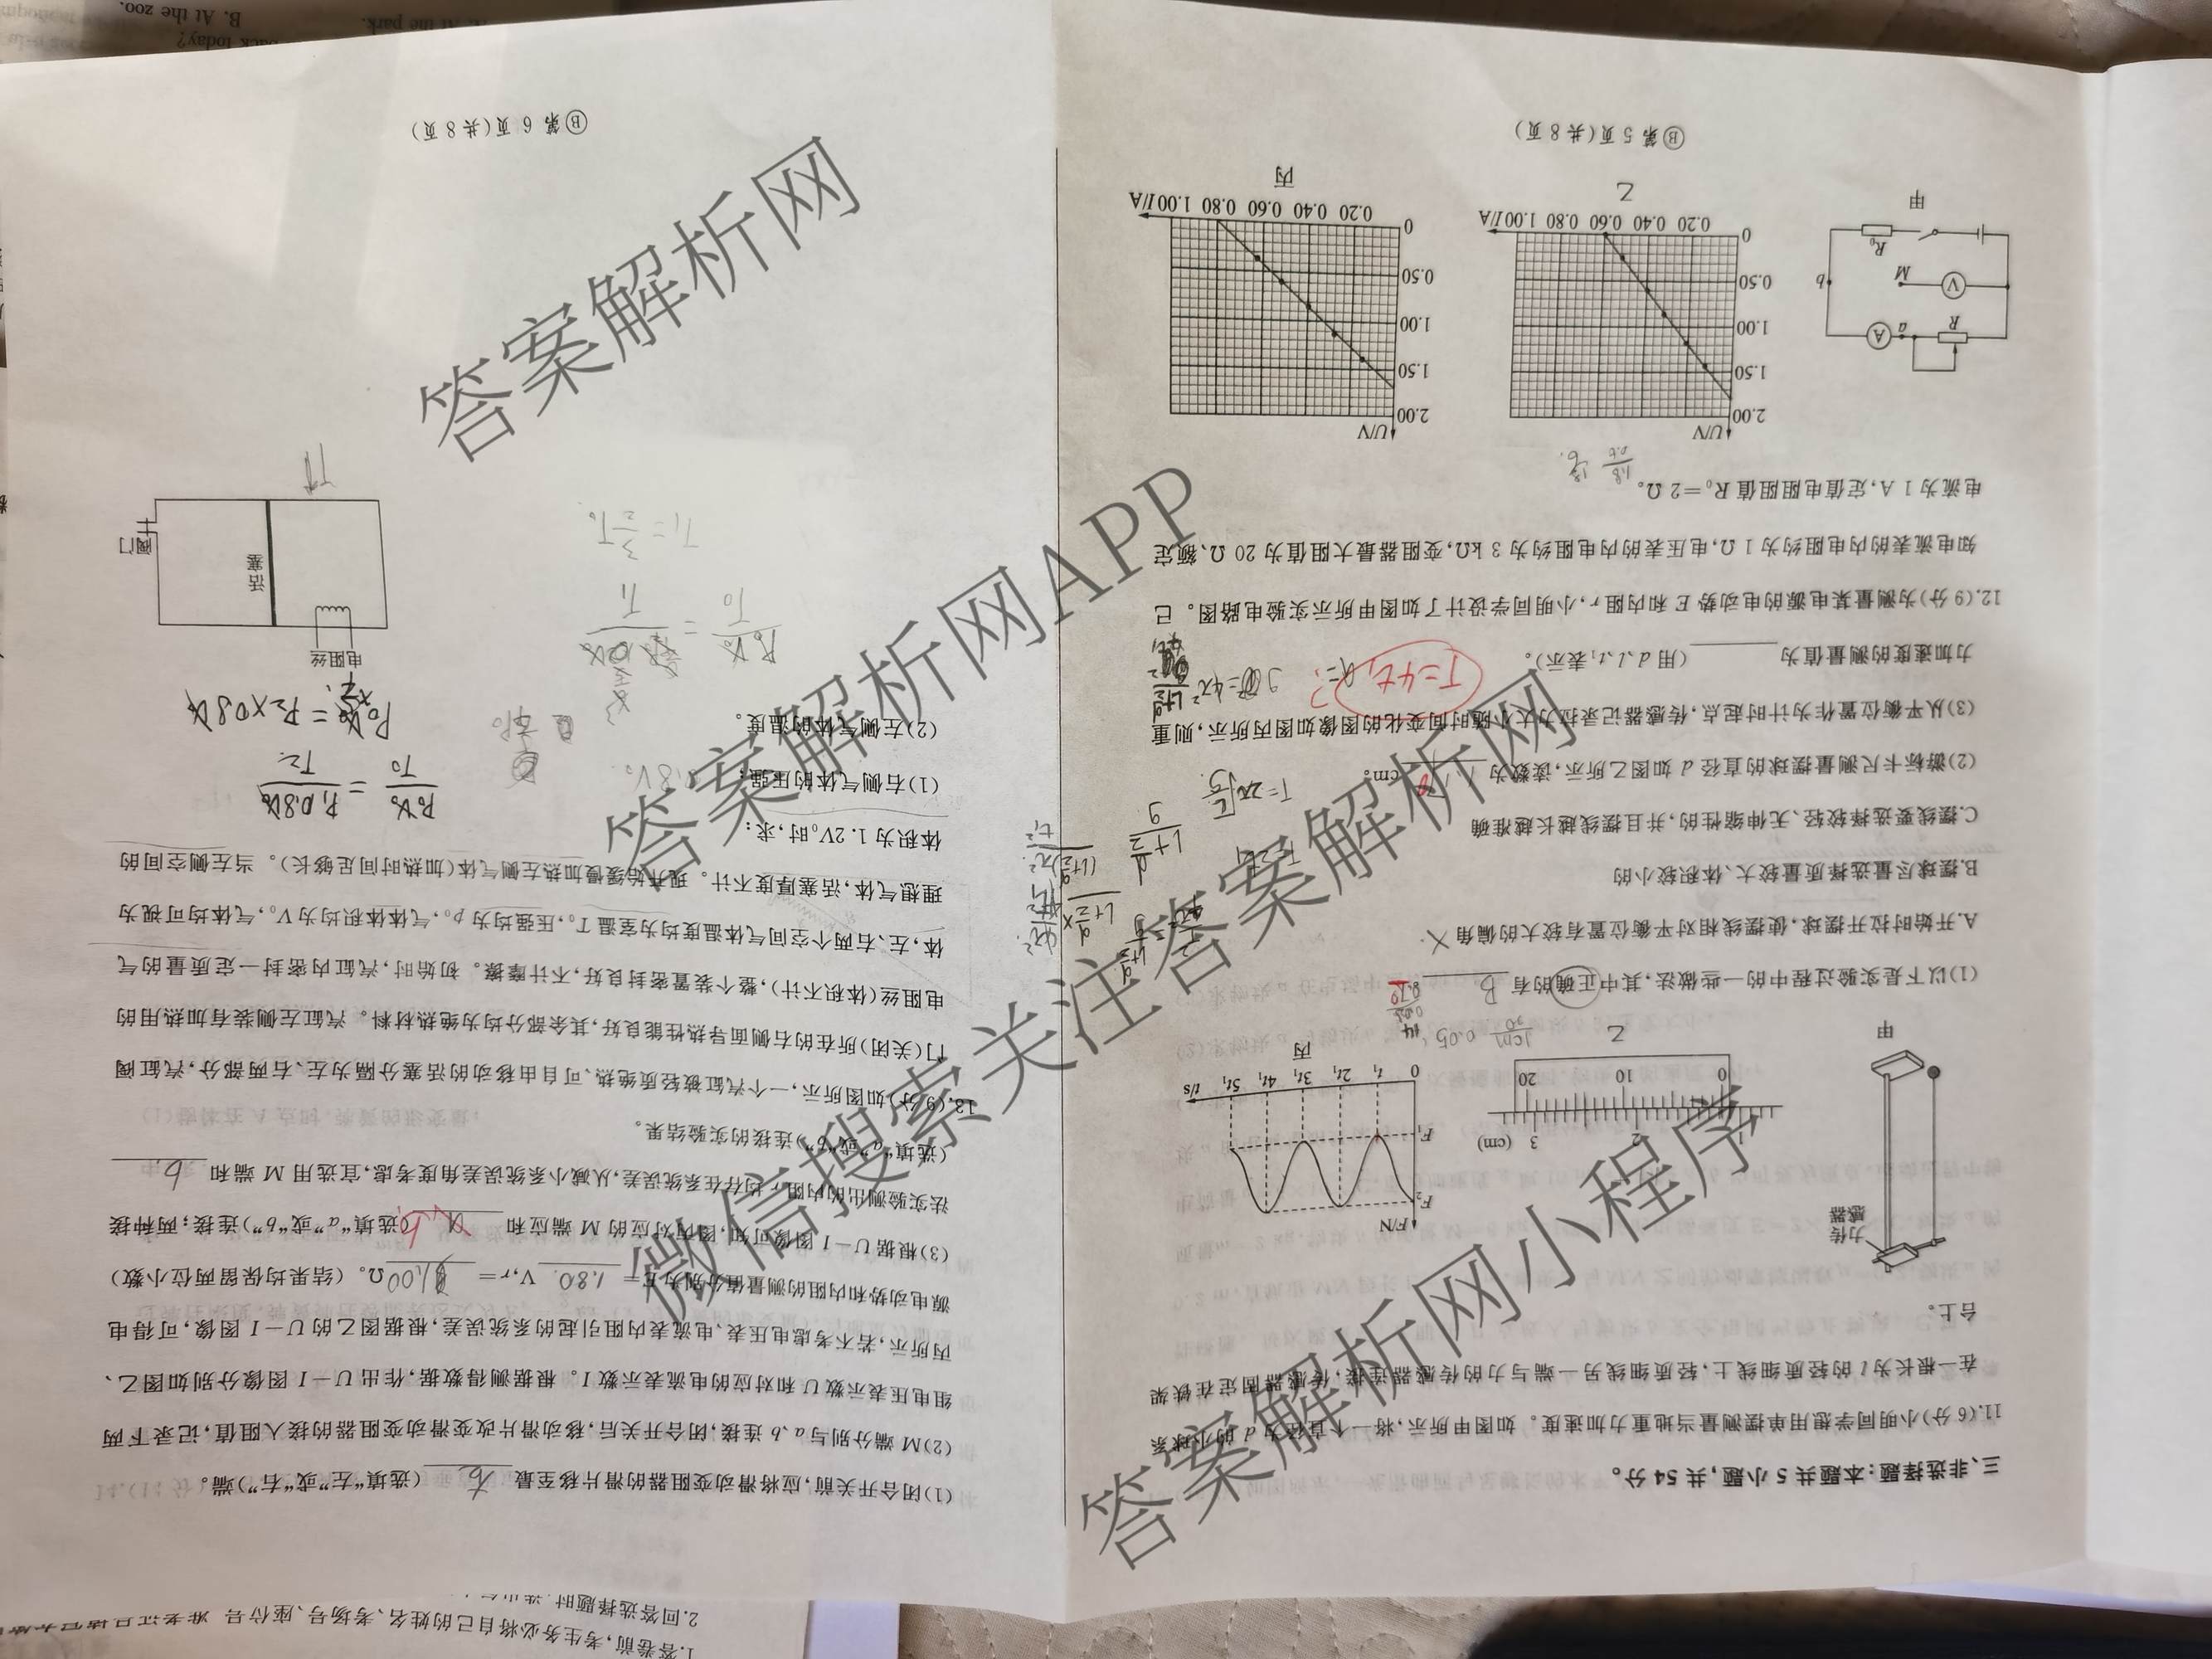 三、非选择题:本题共 5 小题,共 54 分。
11.(6 分)小明同学想用单摆测量当地重力加速度。如图甲所示,将一个直径为 d 的小球系
在一根长为 l 的轻质细线上,轻质细线另一端与力的传感器连接,传感器固定在铁架
台上。
力传
感器
甲
1 2 3 (cm)
0 10 20
乙
F/N
F₂
F₁
0 t₁ 2t₁ 3t₁ 4t₁ 5t₁ t/s
丙
1cm 0.05
(1)以下是实验过程中的一些做法,其中正确的有 B
A.开始时拉开摆球,使摆线相对平衡位置有较大的偏角 ×
B.摆球尽量选择质量较大、体积较小的
C.摆线要选择较轻、无伸缩性的,并且摆线越长越准确
(2)游标卡尺测量摆球的直径 d 如图乙所示,读数为 cm。
(3)从平衡位置作为计时起点,传感器记录拉力大小随时间变化的图像如图丙所示,则重
力加速度的测量值为 (用 d、l、t₁表示)。
T=4t₁
12.(9 分)为测量某电源的电动势 E 和内阻 r,小明同学设计了如图甲所示实验电路图。已
知电流表的内电阻约为 1 Ω,电压表的内电阻约为 3 kΩ,变阻器最大阻值为 20 Ω、额定
电流为 1 A,定值电阻阻值 R₀=2 Ω。
1.8
0.6
R a A
V M b
R₀
甲
U/V
2.00
1.50
1.00
0.50
0 0.20 0.40 0.60 0.80 1.00 I/A
乙
U/V
2.00
1.50
1.00
0.50
0 0.20 0.40 0.60 0.80 1.00 I/A
丙
Ⓑ第 5 页(共 8 页)
(1)闭合开关前,应将滑动变阻器的滑片移至最 左 (选填“左”或“右”)端。
(2)M 端分别与 a、b 连接,闭合开关后,移动滑片改变滑动变阻器的接入阻值,记录下两
组电压表示数 U 和对应的电流表示数 I。根据测得数据,作出 U－I 图像分别如图乙、
丙所示,若不考虑电压表、电流表内阻引起的系统误差,根据图乙的 U－I 图像,可得电
源电动势和内阻的测量值分别为 E= 1.80 V,r= 1.00 Ω。(结果均保留两位小数)
(3)根据 U－I 图像可知,图丙对应的 M 端应和 (选填“a”或“b”)连接;两种接
法实验测出的内阻 r 均存在系统误差,从减小系统误差角度考虑,宜选用 M 端和 b
(选填“a”或“b”)连接的实验结果。
13.(9 分)如图所示,一个汽缸被轻质绝热、可自由移动的活塞分隔为左、右两部分,汽缸阀
门(关闭)所在的右侧面导热性能良好,其余部分均为绝热材料。汽缸左侧装有加热用的
电阻丝(体积不计),整个装置密封良好,不计摩擦。初始时,汽缸内密封一定质量的气
体,左、右两个空间气体温度均为室温 T₀,压强均为 p₀,气体体积均为 V₀,气体均可视为
理想气体,活塞厚度不计。现开始缓慢加热左侧气体(加热时间足够长)。当左侧空间的
体积为 1.2V₀时,求:
(1)右侧气体的压强;
(2)左侧气体的温度。
电阻丝
活塞
阀门
Ⓑ第 6 页(共 8 页)
答案解析网
微信搜索关注答案解析网APP
答案解析网小程序
答案解析网
1.答卷前,考生务必将自己的姓名、考场号、座位号
2.回答选择题时
back today?
B. At the zoo.